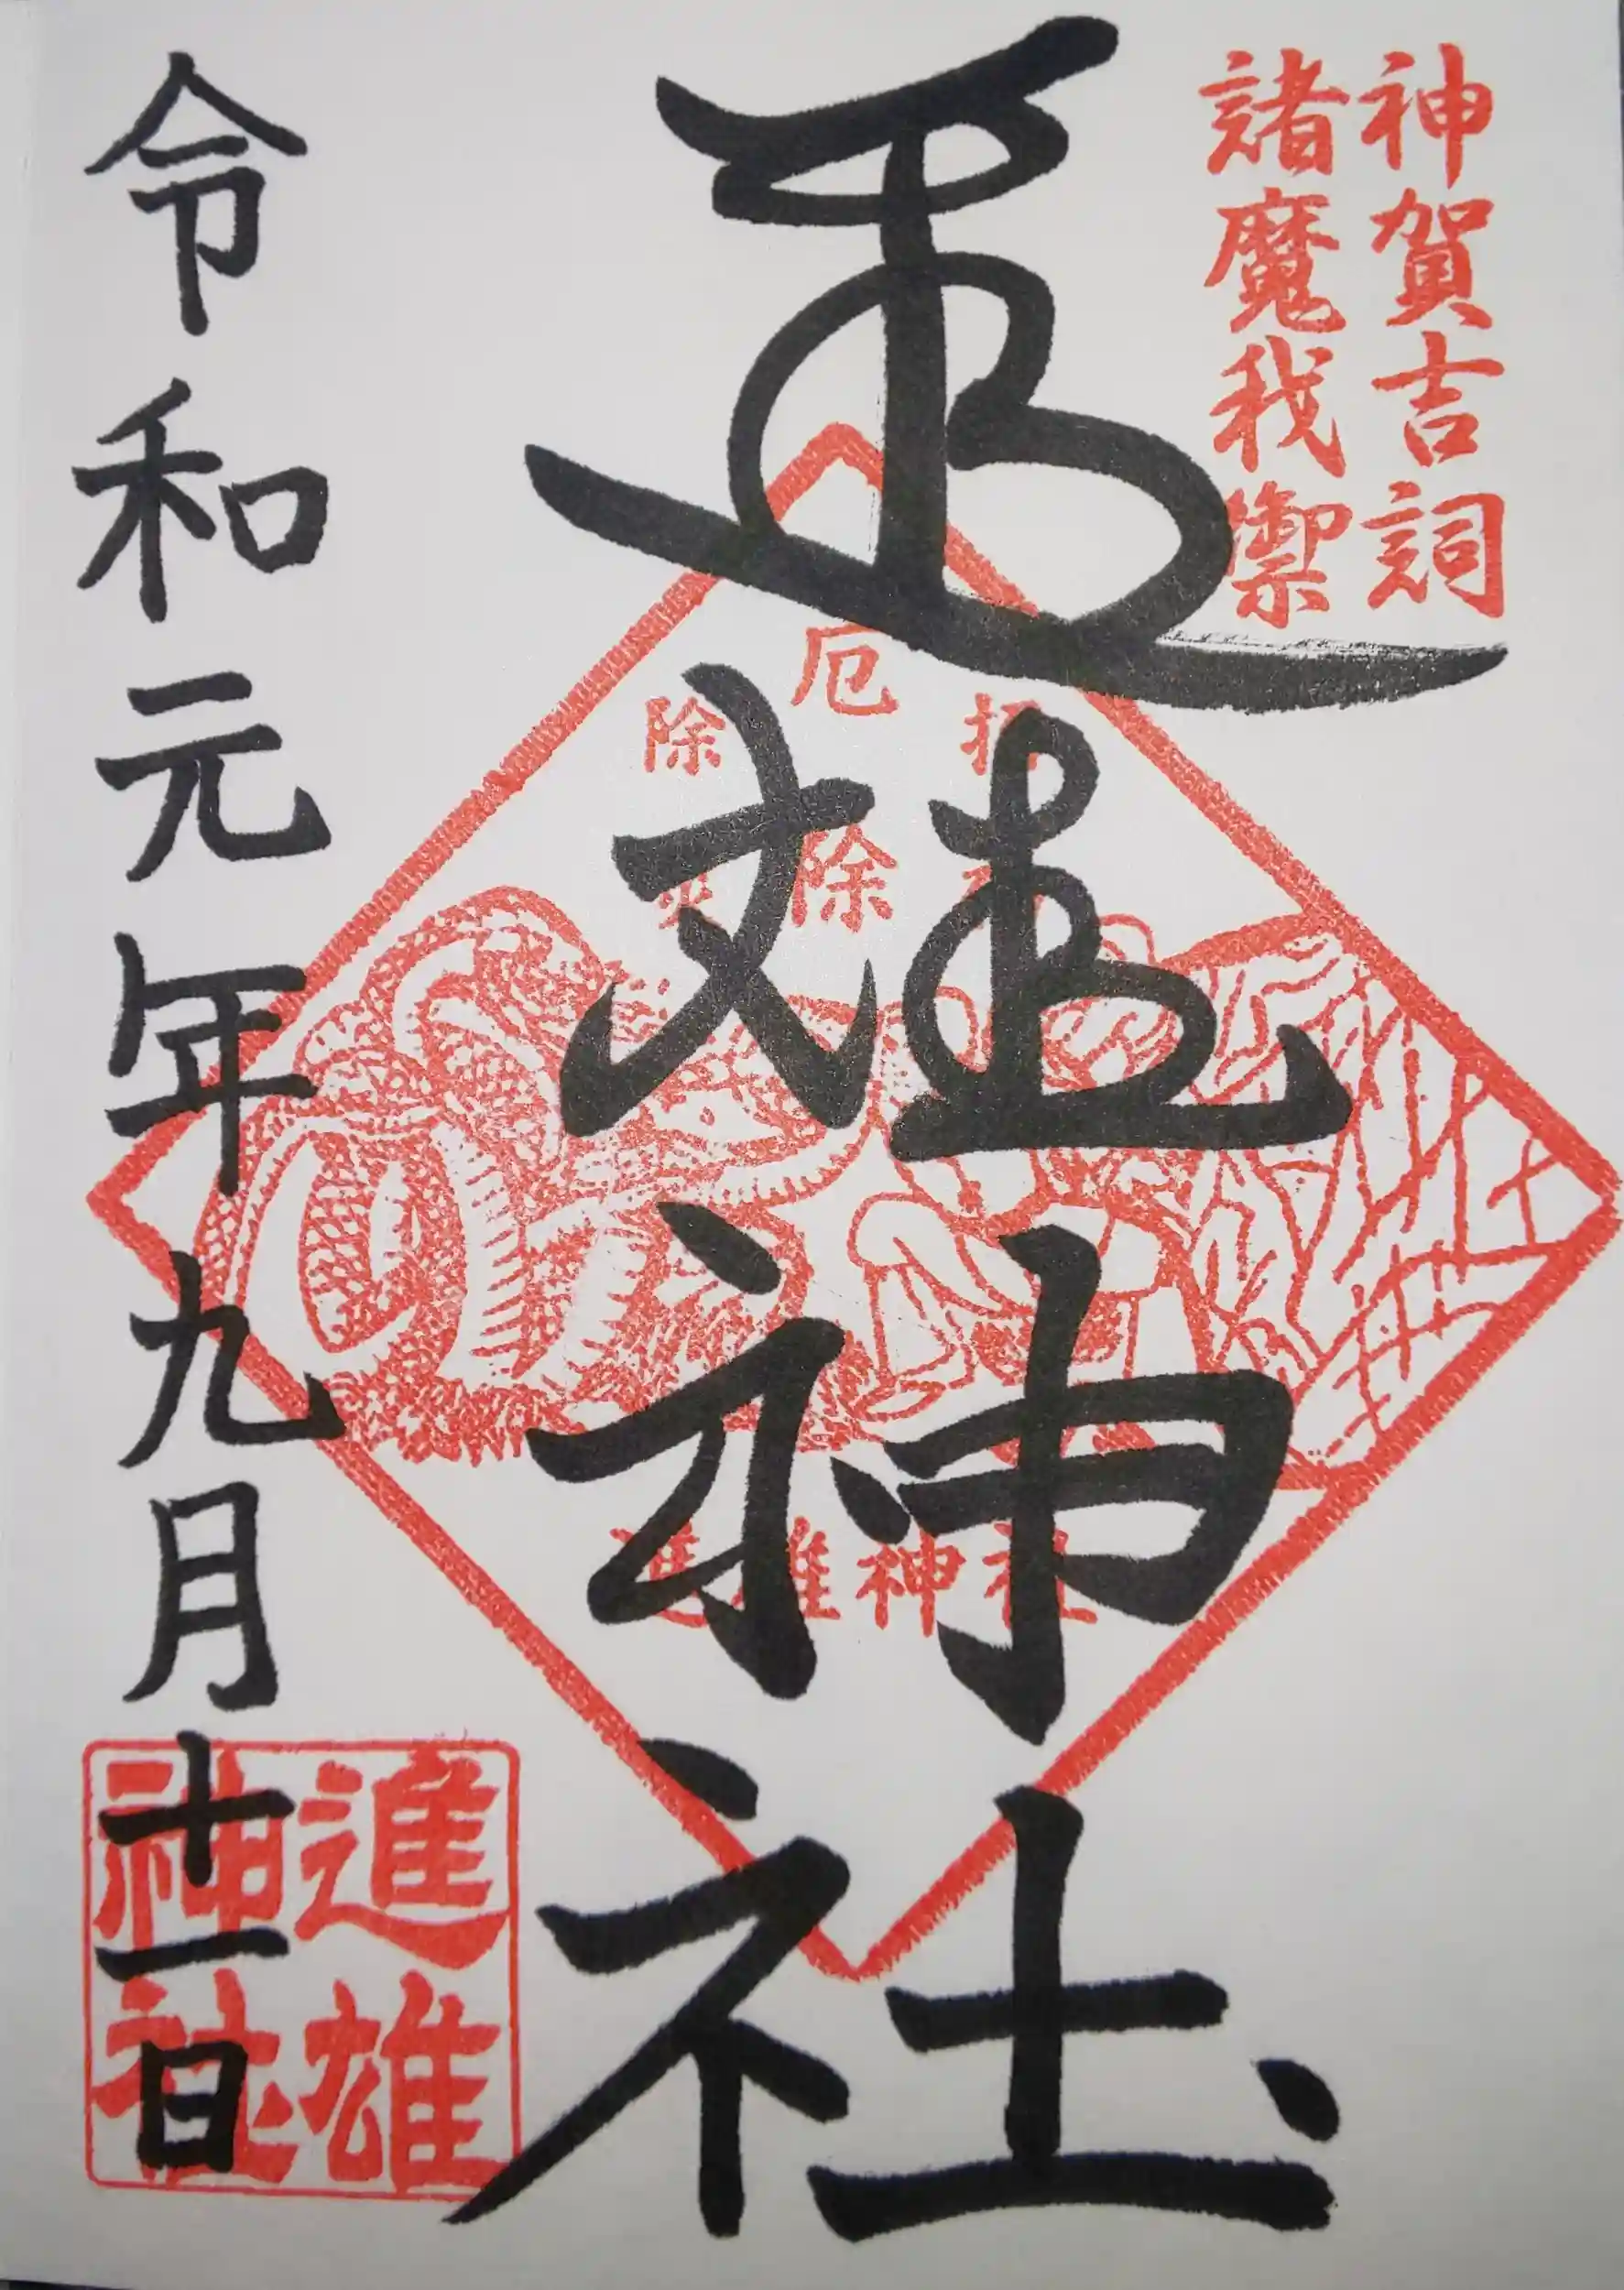 神賀吉詞
諸魔我禦
進雄神社
厄除
除
進雄神社
令和元年九月十一日
進雄
神社